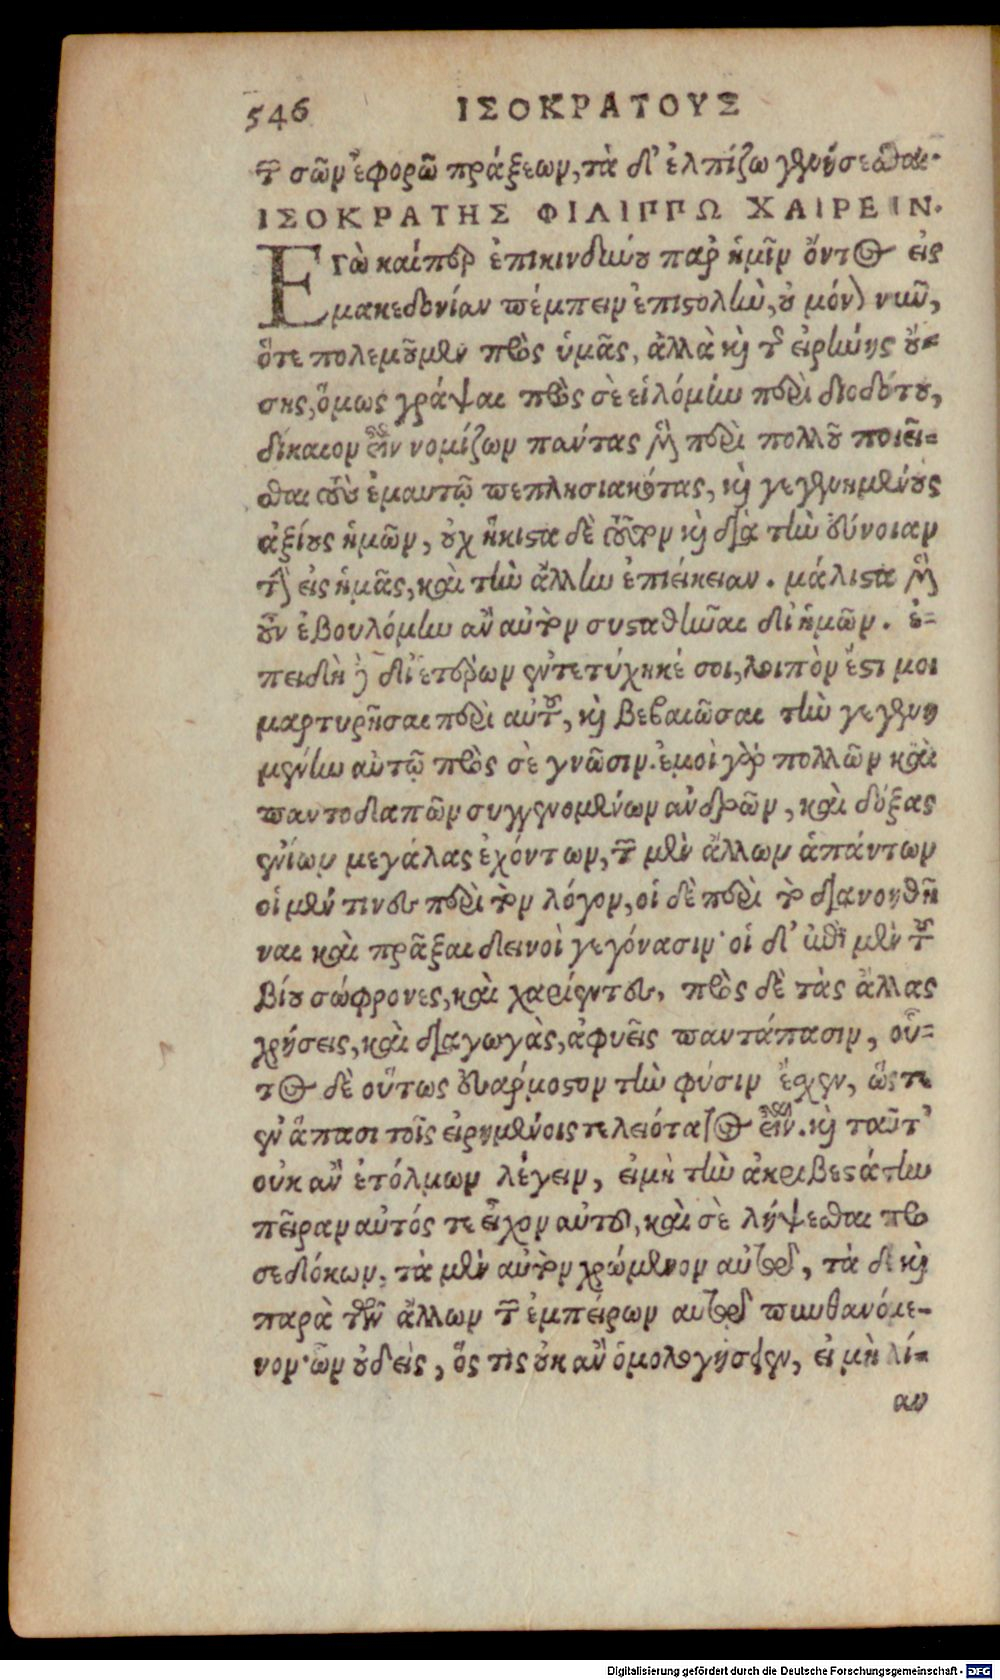 546 ΙΣΟΚΡΑΤΟΥΣ
τῶν σῶν ἐφορῶ πράξεων, τὰ δ' ἐλπίζω γενήσεσθαι.
ΙΣΟΚΡΑΤΗΣ ΦΙΛΙΠΠΩ ΧΑΙΡΕΙΝ.
Εγὼ καίπερ ἐπικινδύνου παρ' ἡμῖν ὄντος εἰς
μακεδονίαν πέμπειν ἐπιστολὴν, οὐ μόνον νυῦ,
ὅτε πολεμοῦμεν πρὸς ὑμᾶς, ἀλλὰ καὶ τῆς εἰρήνης οὔ-
σης, ὅμως γράψαι πρὸς σὲ εἱλόμην περὶ διοδότου,
δίκαιον εἶναι νομίζων παύτας μὲν περὶ πολλοῦ ποιεῖ-
σθαι τοὺς ἐμαυτῷ πεπλησιακότας, καὶ γεγενημένους
ἀξίους ἡμῶν, οὐχ ἥκιστα δὲ τοῦτον καὶ διὰ τὴν εὔνοιαν
τὴν εἰς ἡμᾶς, καὶ τὴν ἄλλην ἐπιείκειαν. μάλιστα μὲν
οὖν ἐβουλόμην ἂν αὐτὸν συσταθῆναι δι' ἡμῶν. ἐ-
πειδὴ δὲ δι' ἑτέρων ἐντετύχηκέ σοι, λοιπὸν ἔστι μοι
μαρτυρῆσαι περὶ αὐτοῦ, καὶ βεβαιῶσαι τὴν γεγενη
μένην αὐτῷ πρὸς σὲ γνῶσιν. ἐμοὶ γὰρ πολλῶν καὶ
παντοδαπῶν συγγενομένων ἀνδρῶν, καὶ δόξας
ἐνίων μεγάλας ἐχόντων, τῶν μὲν ἄλλων ἁπάντων
οἱ μέν τινες περὶ τὸν λόγον, οἱ δὲ περὶ τὸ διανοηθῆ
ναι καὶ πρᾶξαι δεινοὶ γεγόνασιν· οἱ δ' ἐπὶ μὲν τοῦ
βίου σώφρονες, καὶ χαρίεντες, πρὸς δὲ τὰς ἄλλας
χρήσεις, καὶ διαγωγὰς, ἀφυεῖς παντάπασιν, οὗ-
τος δὲ οὕτως εὐάρμοστον τὴν φύσιν ἔσχεν, ὥστε
ἐν ἅπασι τοῖς εἰρημένοις τελειότατος εἶναι. καὶ ταῦτ'
οὐκ ἂν ἐτόλμων λέγειν, εἰ μὴ τὴν ἀκριβεστάτην
πεῖραν αὐτός τε εἶχον αὐτοῦ, καὶ σὲ λήψεσθαι προ
σεδόκων, τὰ μὲν αὐτὸν χρώμενον αὐτῷ, τὰ δὲ καὶ
παρὰ τῶν ἄλλων τῶν ἐμπείρων αὐτοῦ πυνθανόμε-
νον· ὧν οὐδεὶς, ὅς τις οὐκ ἂν ὁμολογήσειεν, εἰ μὴ λί-
αν
Digitalisierung gefördert durch die Deutsche Forschungsgemeinschaft - DFG